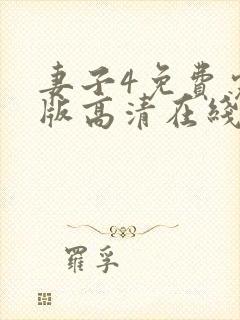 妻子4免费完
版高清在线
羅孚